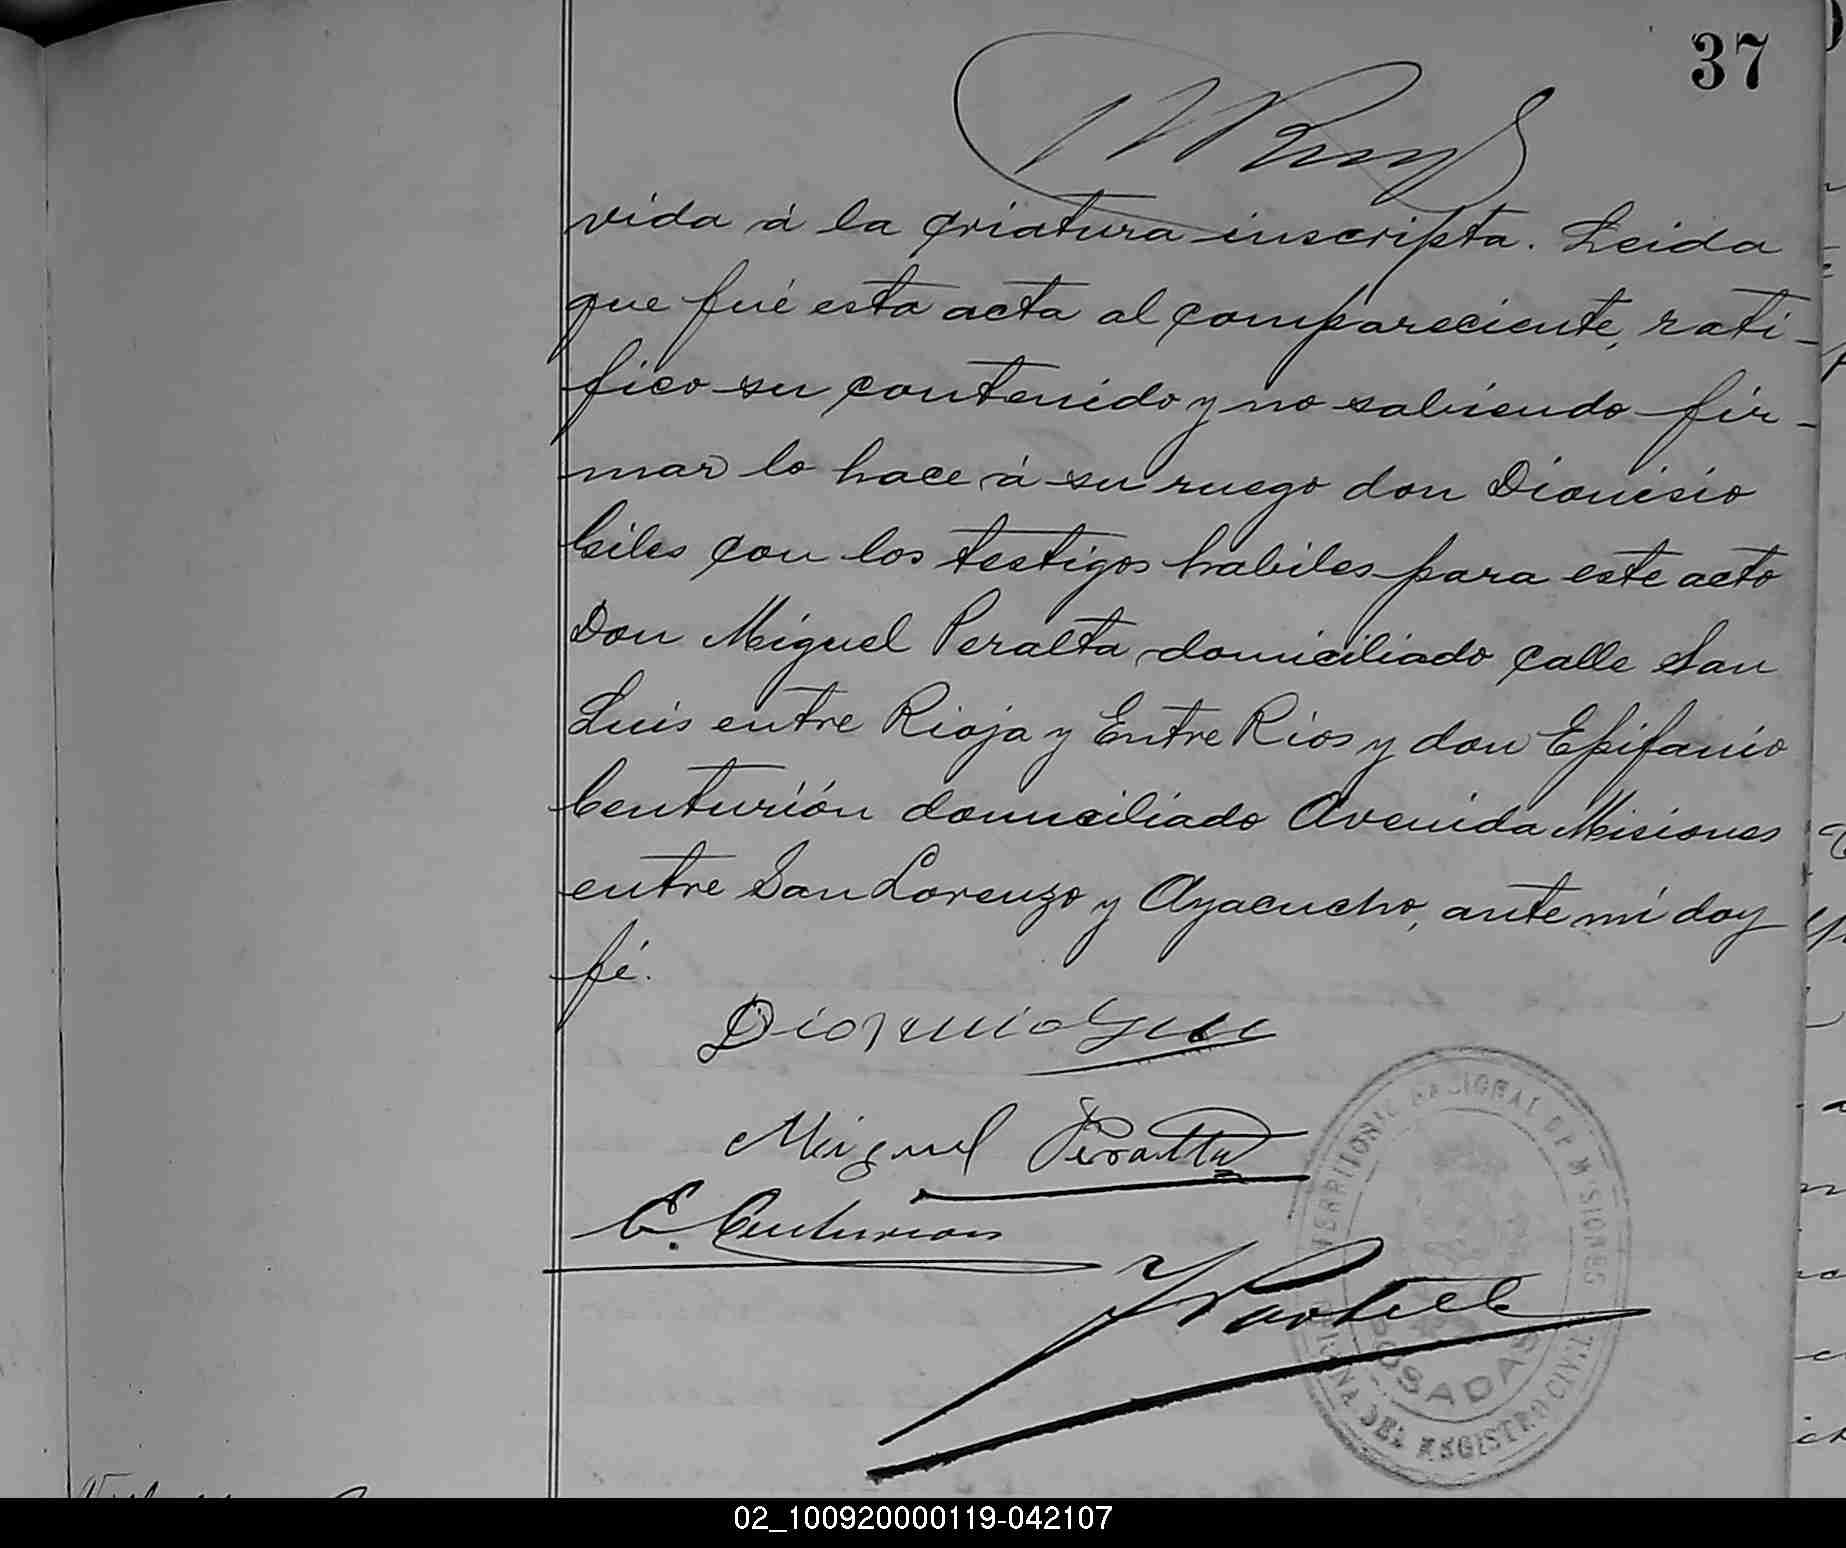 37
vida á la criatura inscripta. Leida
que fué esta acta al compareciente, rati-
fico su contenido y no sabiendo fir-
mar lo hace á su ruego don Dionisio
Giles con los testigos habiles para este acto
Don Miguel Peralta domiciliado calle San
Luis entre Rioja y Entre Rios y don Epifanio
Centurión domiciliado Avenida Misiones
entre San Lorenzo y Ayacucho, ante mi doy
fé.
Miguel Peralta
E. Centurion
TERRITORIO NACIONAL DE MISIONES
POSADAS
OFICINA DEL REGISTRO CIVIL
02_100920000119-042107